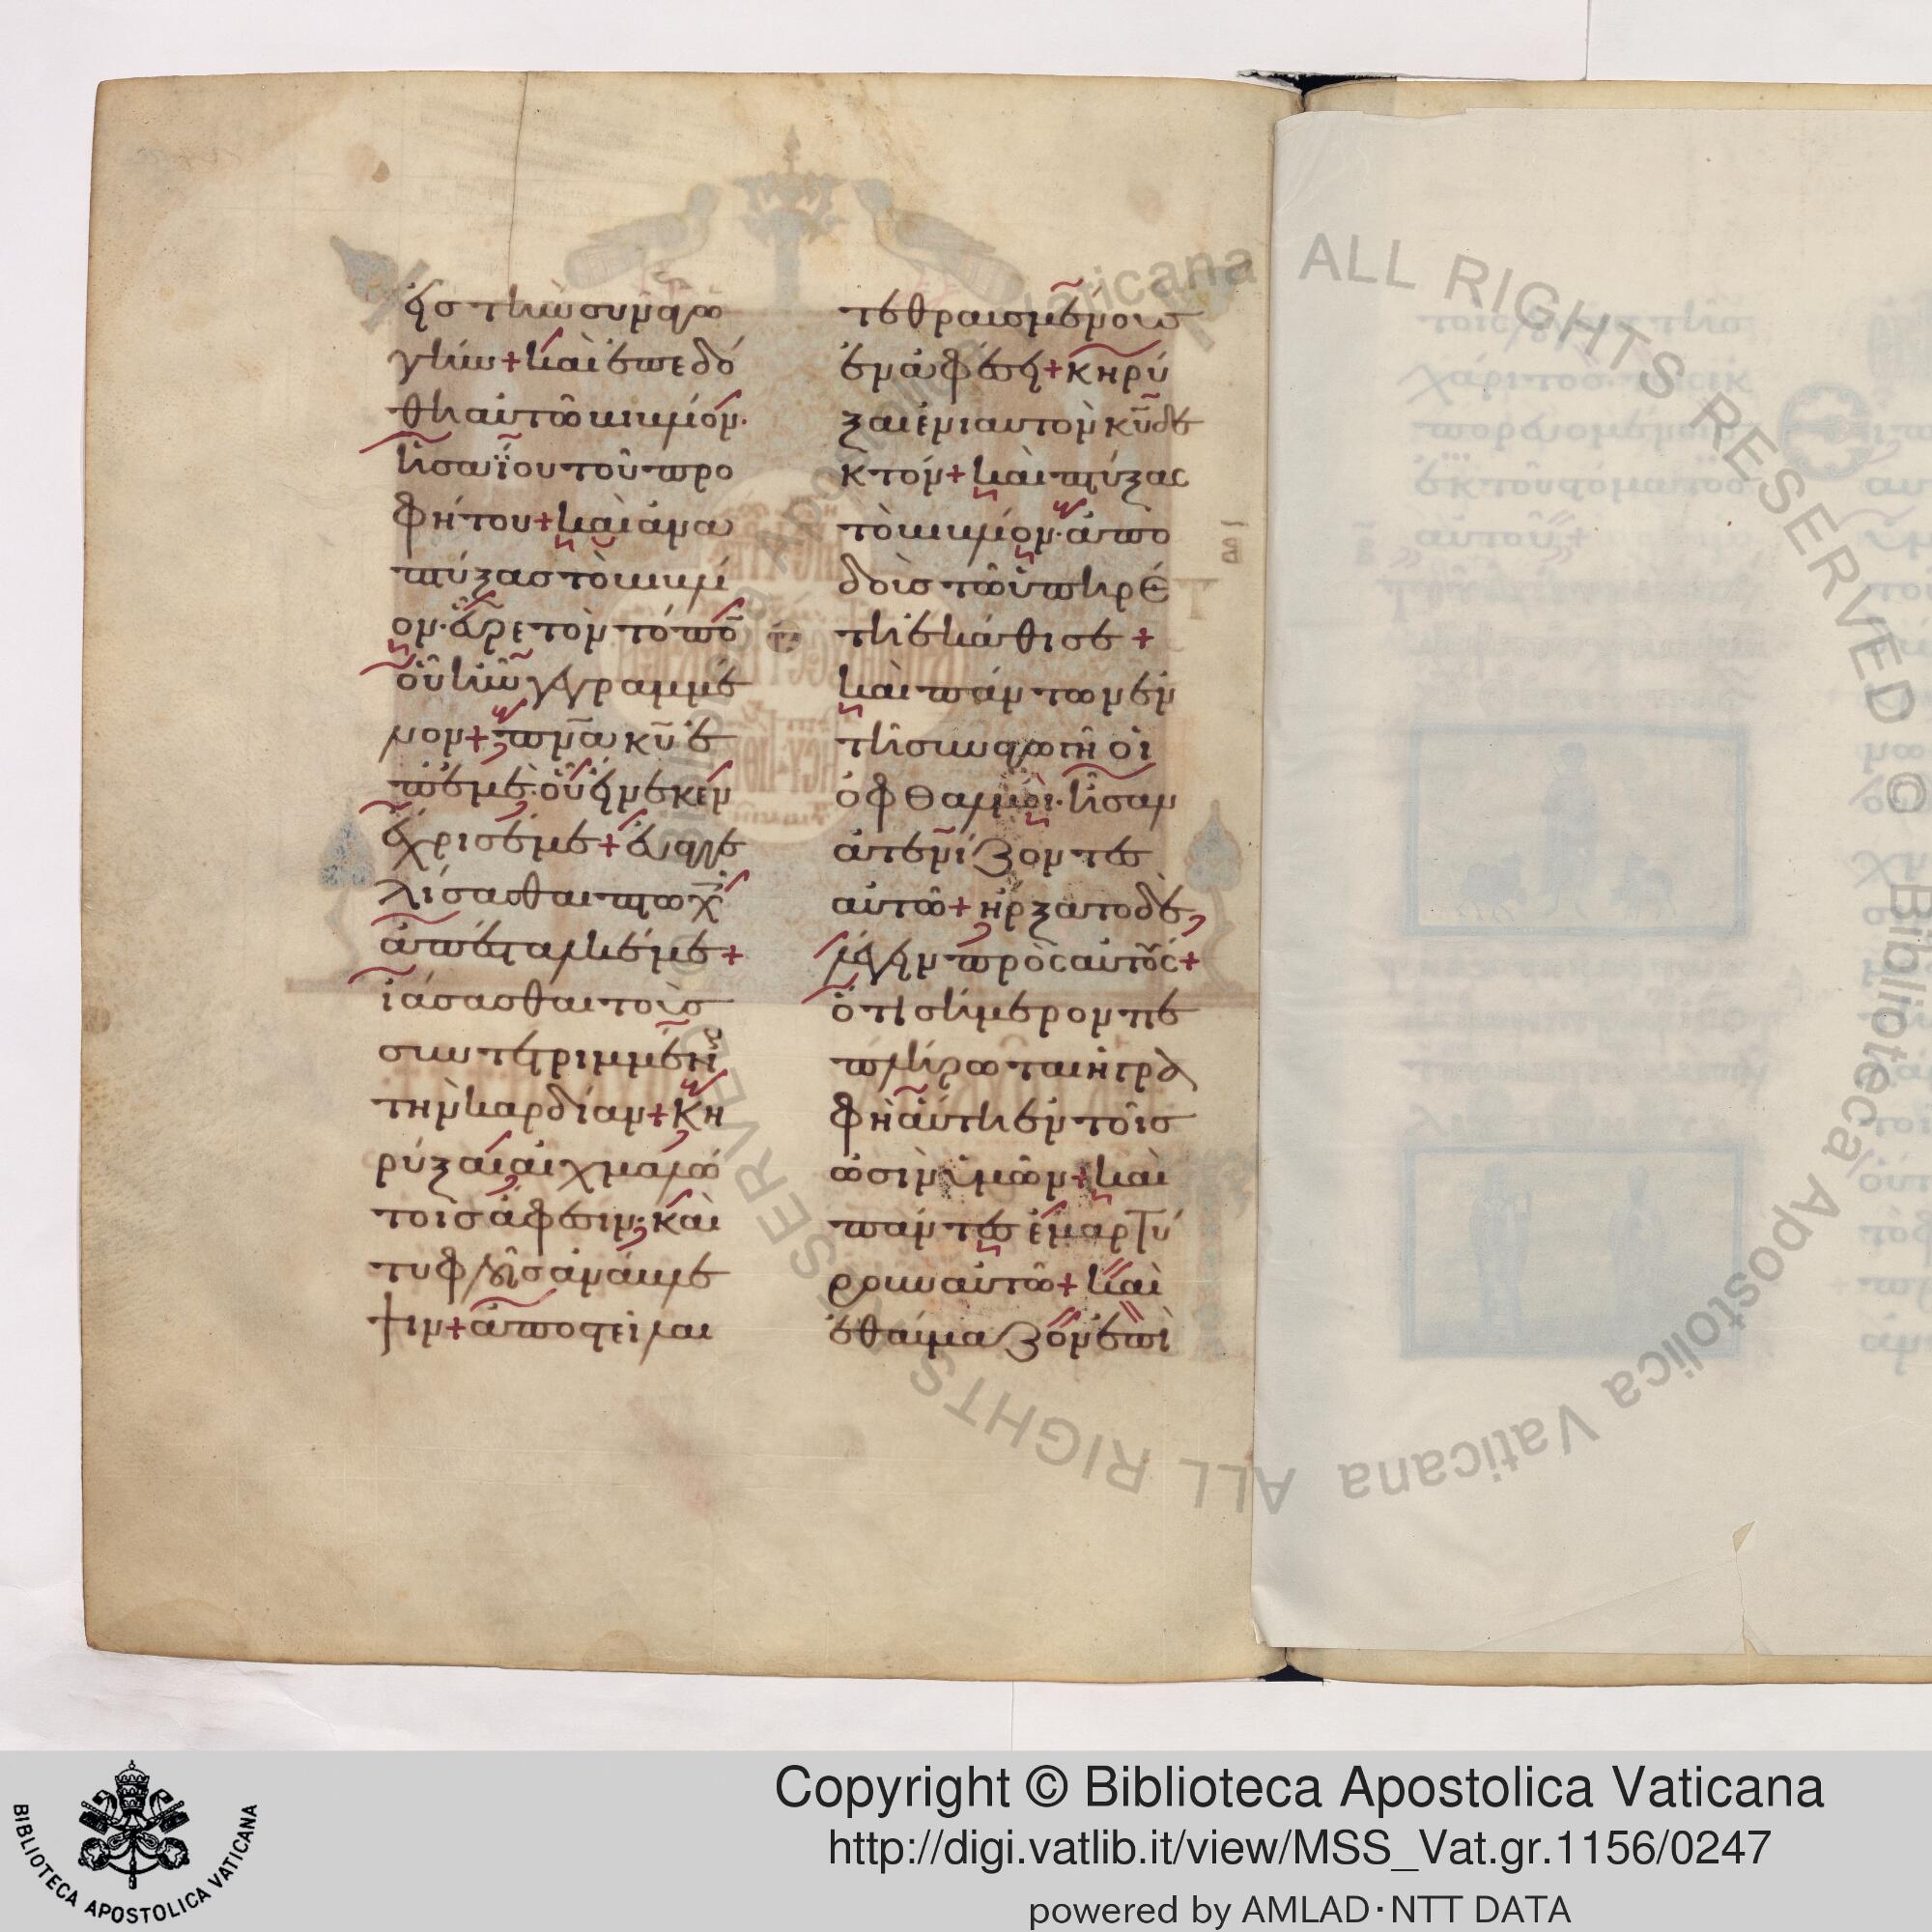 εἰς τὴν συναγω
γήν + καὶ ἐπεδό
θη αὐτῶ βιβλίον·
ἠσαΐου τοῦ προ
φήτου + καὶ ἀνα
πτύξας τὸ βιβλί
ον· εὗρε τὸν τόπον
οὗ ἦν γεγραμμέ
νον + πνα κυ ἐ
π' ἐμέ· οὗ εἵνεκεν
ἔχρισέ με + εὐαγγε
λίσασθαι πτωχοῖς
ἀπέσταλκέ με +
ἰάσασθαι τοὺς
συντετριμμένους
τὴν καρδίαν + κη
ρύξαι αἰχμαλώ
τοις ἄφεσιν· καὶ
τυφλοῖς ἀνάβλε
ψιν + ἀποστεῖλαι
τεθραυσμένους
ἐν ἀφέσει + κηρύ
ξαι ἐνιαυτὸν κυ δε
κτόν + καὶ πτύξας
τὸ βιβλίον· ἀπο
δοὺς τῶ ὑπηρέ
τη ἐκάθισε +
καὶ πάντων ἐν
τῆ συναγωγῆ οἱ
ὀφθαλμοὶ· ἦσαν
ἀτενίζοντες
αὐτῶ + ἤρξατο δὲ
λέγειν πρὸς αὐτούς +
ὅτι σήμερον πε
πλήρωται ἡ γρα
φὴ αὕτη ἐν τοῖς
ὠσὶν ὑμῶν + καὶ
πάντες ἐμαρτύ
ρουν αὐτῶ + καὶ
ἐθαύμαζον ἐπὶ
ALL RIGHTS RESERVED © Biblioteca Apostolica Vaticana
Copyright © Biblioteca Apostolica Vaticana
http://digi.vatlib.it/view/MSS_Vat.gr.1156/0247
powered by AMLAD·NTT DATA
BIBLIOTECA APOSTOLICA VATICANA